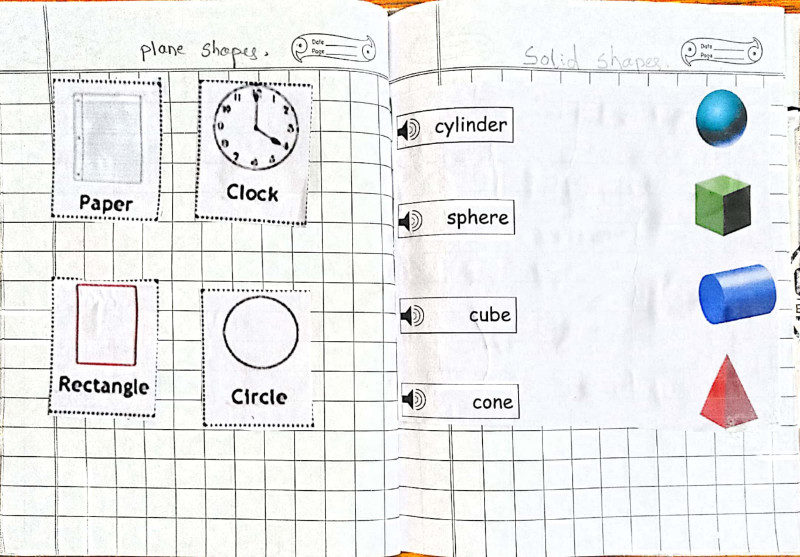 plane shapes.
Date
Page
Paper
11 12 1
10 2
9 3
8 4
7 6 5
Clock
Rectangle
Circle
Solid shapes.
Date
Page
cylinder
sphere
cube
cone